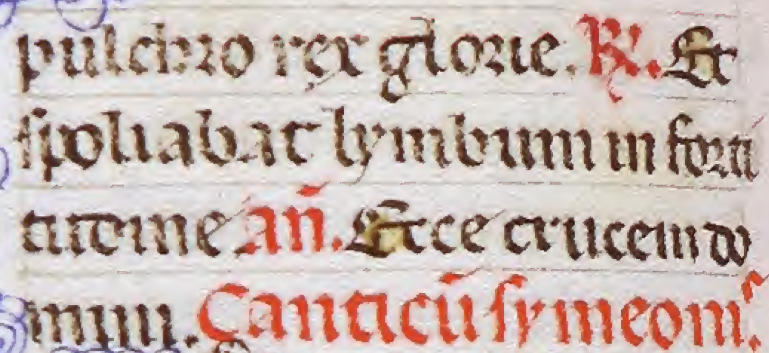 pulchro rex glorie. R̃. Et
spoliabat lymbum in forti
tudine añ. Ecce crucem do
mini. Canticũ symeonis.